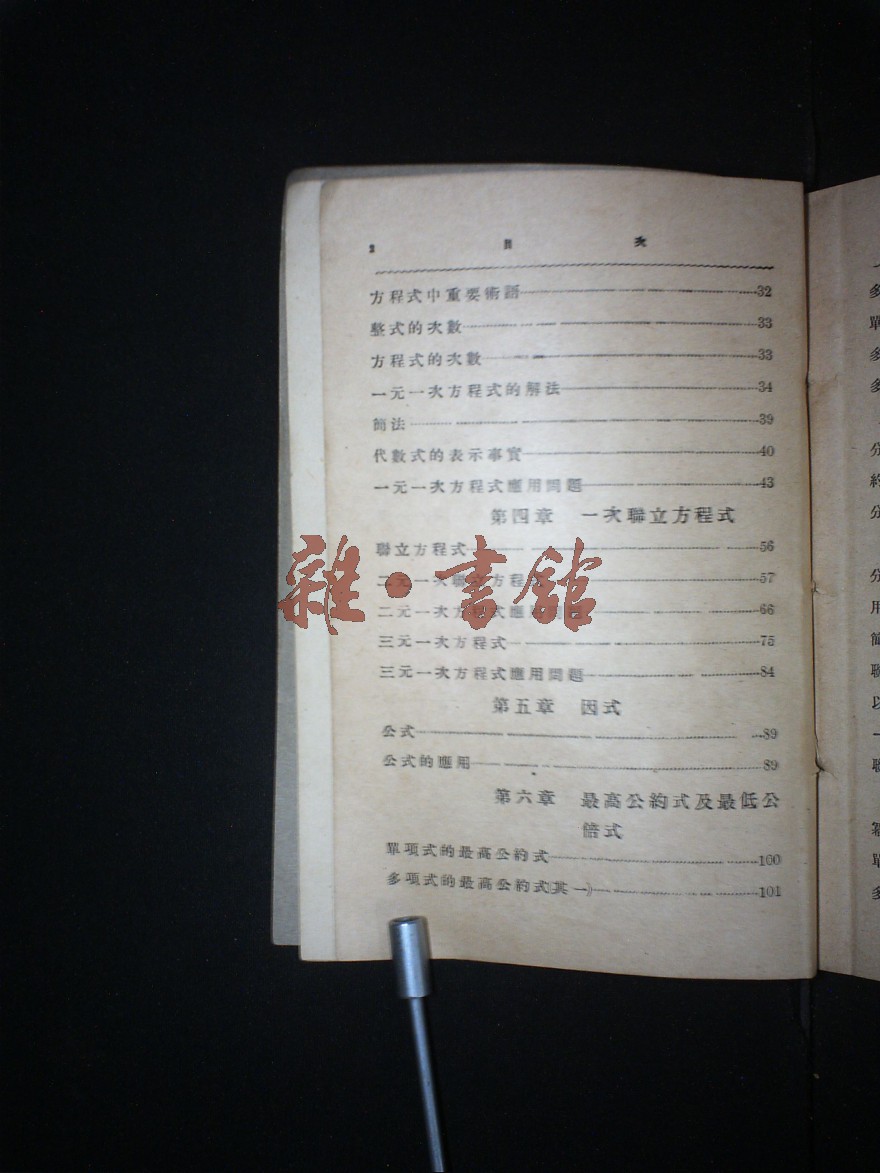 2 目 次
方程式中重要術語 32
整式的次數 33
方程式的次數 33
一元一次方程式的解法 34
簡法 39
代數式的表示事實 40
一元一次方程式應用問題 43
第四章 一次聯立方程式
聯立方程式 56
二元一次聯立方程式 57
二元一次方程式應用問題 66
三元一次方程式 75
三元一次方程式應用問題 84
第五章 因式
公式 89
公式的應用 89
第六章 最高公約式及最低公
倍式
單項式的最高公約式 100
多項式的最高公約式(其一) 101
雜·書館
多
單
多
多
分
約
分
分
用
簡
聯
以
一
聯
單
多